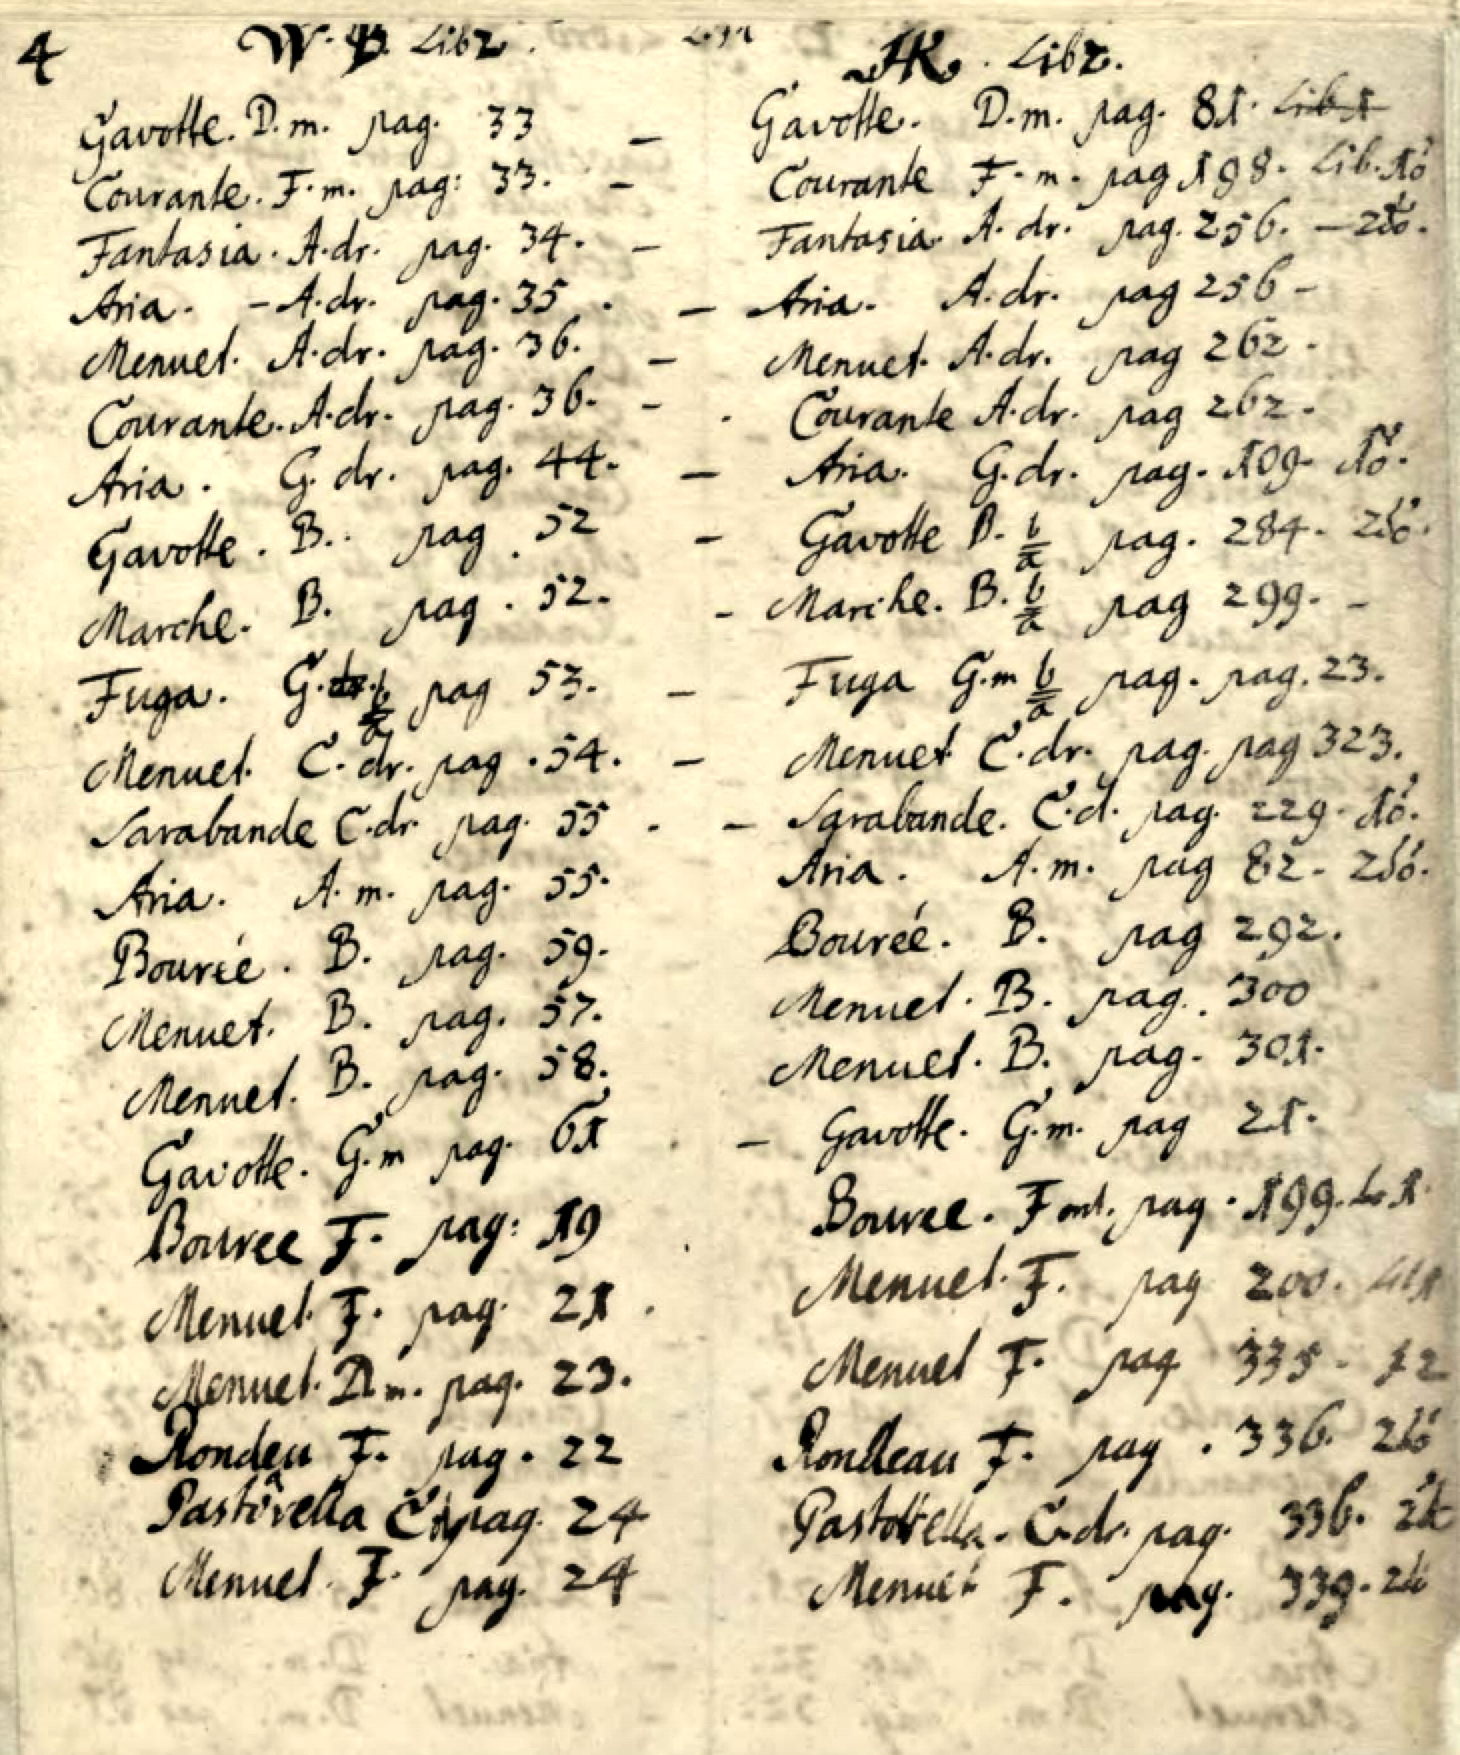 4 W. B. Libr. JK. Libr.
Gavotte. D. m. pag. 33 — Gavotte. D. m. pag. 81. Lib. 1
Courante. F. m. pag: 33. — Courante F. m. pag 198. Lib. 1ō
Fantasia. A. dr. pag. 34. — Fantasia A. dr. pag. 256. — 2dō.
Aria. — A. dr. pag. 35. — Aria. A. dr. pag 256 —
Menuet. A. dr. pag. 36. — Menuet. A. dr. pag 262.
Courante. A. dr. pag. 36. — Courante A. dr. pag 262.
Aria. G. dr. pag. 44. — Aria. G. dr. pag. 109. 1ō.
Gavotte. B. pag. 52 — Gavotte B. b/a pag. 284. 2dō.
Marche. B. pag. 52. — Marche. B. b/a pag 299. —
Fuga. G. dr. b/a pag 53. — Fuga G. m b/a pag. pag. 23.
Menuet. C. dr. pag. 54. — Menuet C. dr. pag. pag 323.
Sarabande C. dr. pag. 55. — Sarabande. C. d. pag. 229. 1ō.
Aria. A. m. pag. 55. Aria. A. m. pag 82. 2dō.
Bourée. B. pag. 59. Bourée. B. pag 292.
Menuet. B. pag. 57. Menuet. B. pag. 300
Menuet. B. pag. 58. Menuet. B. pag. 301.
Gavotte. G. m pag. 61 — Gavotte. G. m. pag 21.
Bouree F. pag: 19 Bouree. F pag. 199. L. 1.
Menuet. F. pag. 21. Menuet. F. pag 200.
Menuet. D. m. pag. 23. Menuet F. pag 335.
Rondeu F. pag. 22 Rondeau F. pag. 336. 2dō
Pastorella C pag. 24 Pastorella. C. dr. pag. 336. 2d
Menuet. F. pag. 24 Menuet F. pag. 339. 2dō